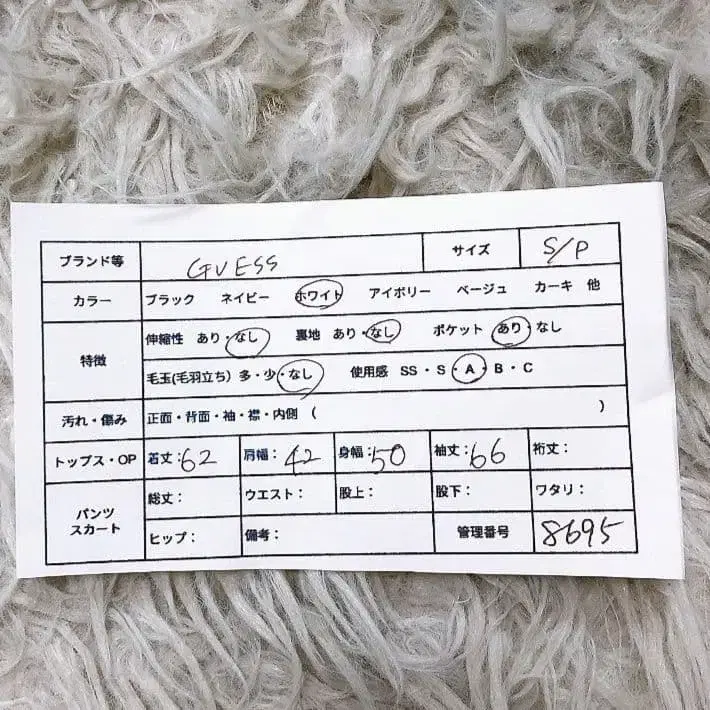 ブランド等 GUESS サイズ S/P
カラー ブラック ネイビー ホワイト アイボリー ベージュ カーキ 他
特徴 伸縮性 あり・なし 裏地 あり・なし ポケット あり・なし
毛玉(毛羽立ち) 多・少・なし 使用感 SS・S・A・B・C
汚れ・傷み 正面・背面・袖・襟・内側 ( )
トップス・OP 着丈:62 肩幅:42 身幅:50 袖丈:66 裄丈:
パンツ スカート 総丈: ウエスト: 股上: 股下: ワタリ:
ヒップ: 備考: 管理番号 8695